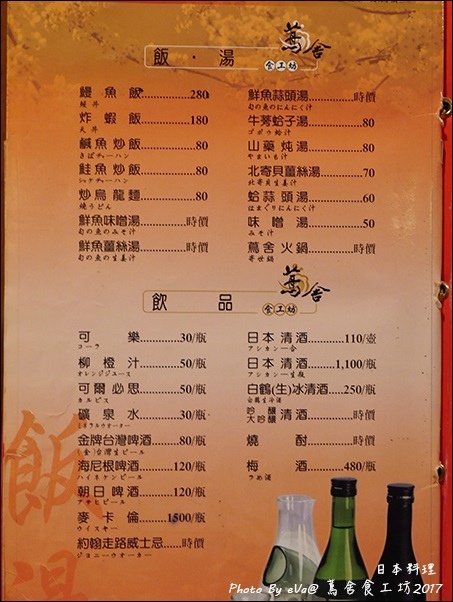 飯・湯
蔦舍
食工坊
鰻魚飯 280
鰻丼
炸蝦飯 180
天丼
鹹魚炒飯 80
さばチャーハン
鮭魚炒飯 80
シャケチャーハン
炒烏龍麵 80
焼うどん
鮮魚味噌湯 時價
旬の魚のみそ汁
鮮魚薑絲湯 時價
旬の魚の生姜汁
鮮魚蒜頭湯 時價
旬の魚のにんにく汁
牛蒡蛤子湯 80
ゴボウ蛤汁
山藥炖湯 80
やまいも汁
北寄貝薑絲湯 70
北寄貝生姜汁
蛤蒜頭湯 60
はまぐりにんにく汁
味噌湯 50
みそ汁
蔦舍火鍋 時價
寄世鍋
飲品
蔦舍
食工坊
可樂 30/瓶
コーラ
柳橙汁 50/瓶
オレンジジュース
可爾必思 50/瓶
カルピス
礦泉水 30/瓶
ミネラルウオーター
金牌台灣啤酒 80/瓶
(金)台灣生ビール
海尼根啤酒 120/瓶
ハイネケンビール
朝日啤酒 120/瓶
アサヒビール
麥卡倫 1500/瓶
ウイスキー
約翰走路威士忌 時價
ジョニーウオーカー
日本清酒 110/壺
日本清酒 1,100/瓶
白鶴(生)冰清酒 250/瓶
白鶴生冷酒
吟釀
大吟釀 清酒 時價
燒酎 時價
梅酒 480/瓶
うめ酒
飯
湯
日本料理
Photo By eVa@ 蔦舍食工坊2017